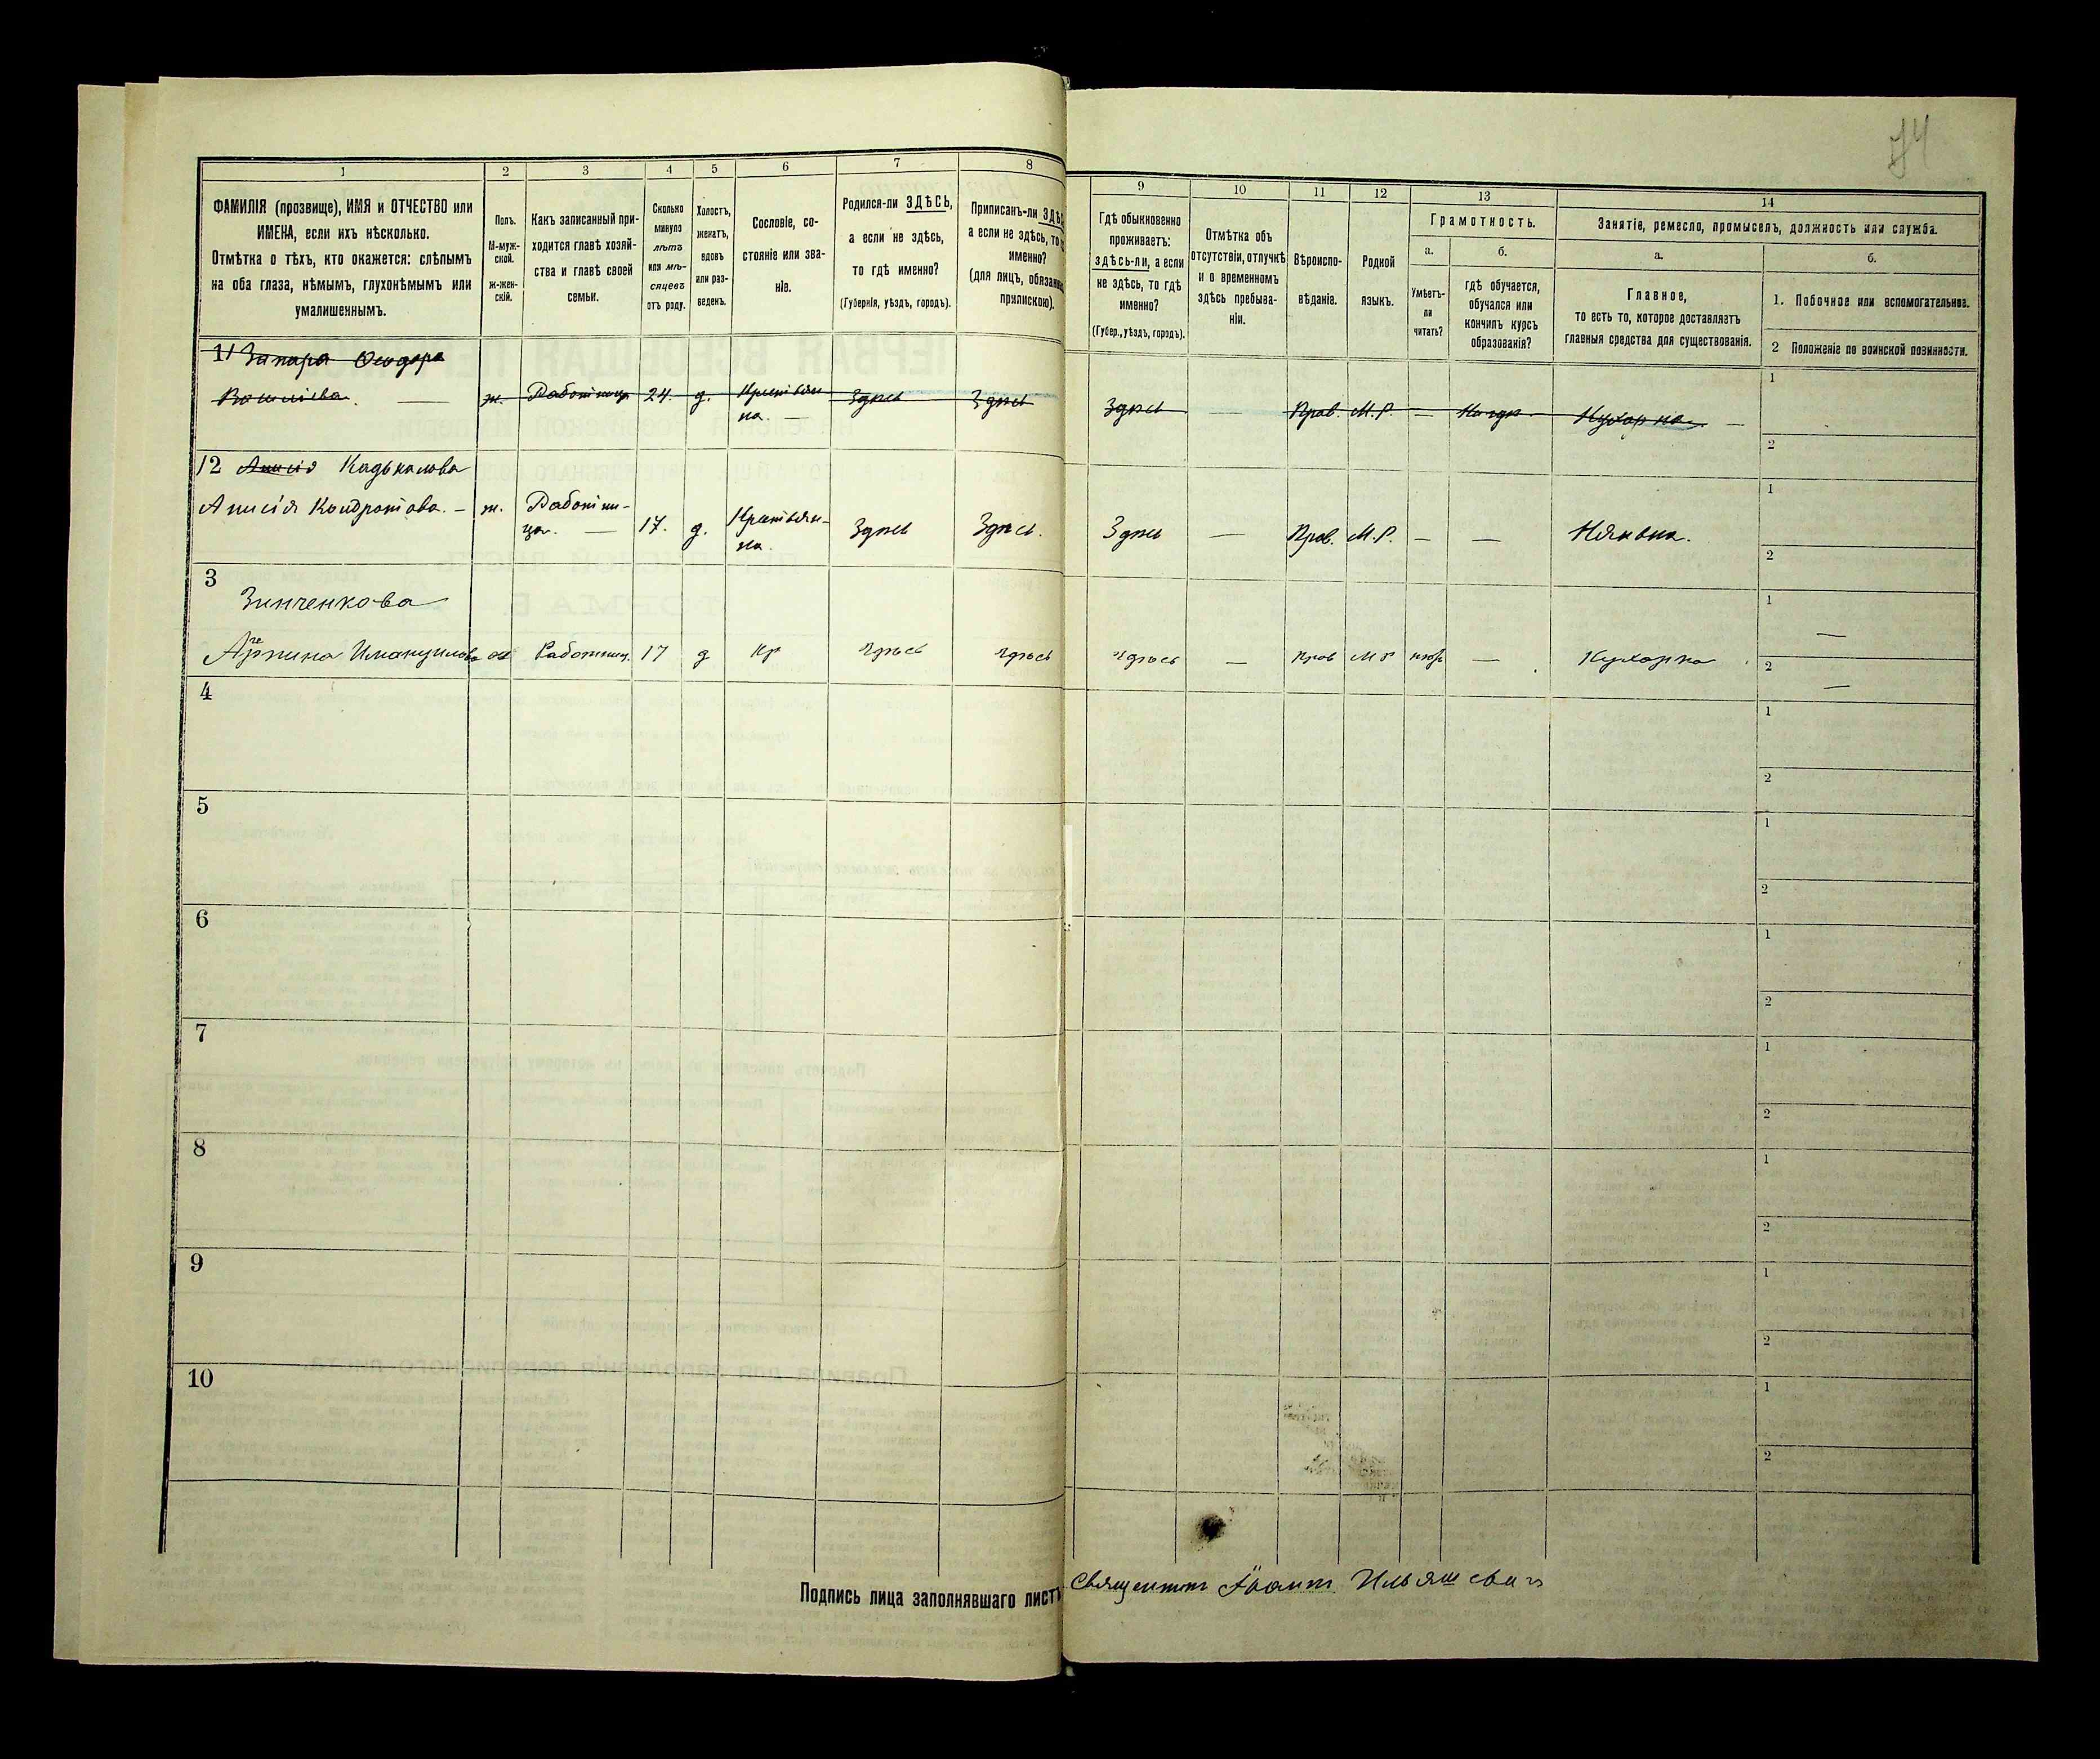 74
1
ФАМИЛІЯ (прозвище), ИМЯ и ОТЧЕСТВО или
ИМЕНА, если ихъ нѣсколько.
Отмѣтка о тѣхъ, кто окажется: слѣпымъ
на оба глаза, нѣмымъ, глухонѣмымъ или
умалишеннымъ.
2
Полъ.
М-муж-
ской.
ж-жен-
скій.
3
Какъ записанный при-
ходится главѣ хозяй-
ства и главѣ своей
семьи.
4
Сколько
минуло
лѣтъ
или мѣ-
сяцевъ
отъ роду.
5
Холостъ,
женатъ,
вдовъ
или раз-
веденъ.
6
Сословіе, со-
стояніе или зва-
ніе.
7
Родился-ли ЗДѢСЬ,
а если не здѣсь,
то гдѣ именно?
(Губернія, уѣздъ, городъ).
8
Приписанъ-ли
а если не здѣсь, то
именно?
(для лицъ,
припискою).
9
Гдѣ обыкновенно
проживаетъ:
здѣсь-ли, а если
не здѣсь, то гдѣ
именно?
(Губер., уѣздъ, городъ).
10
Отмѣтка объ
отсутствіи, отлучкѣ
и о временномъ
здѣсь пребыва-
ніи.
11
Вѣроиспо-
вѣданіе.
12
Родной
языкъ.
13
Грамотность.
а.
Умѣетъ-
ли
читать?
б.
гдѣ обучается,
обучался или
кончилъ курсъ
образованія?
14
Занятіе, ремесло, промыселъ, должность или служба.
а.
Главное,
то есть то, которое доставляетъ
главныя средства для существованія.
б.
1. Побочное или вспомогательное.
2 Положеніе по воинской повинности.
11 Запара Ѳеодора
Васильева. — ж. Работница 24. д. Крестьян-
на. — Здѣсь Здѣсь Здѣсь — Прав. М.Р. — Кухарка —
1
2
12 Анисія Кадькалова
Анисія Кондратова. — ж. Работни-
ца. — 17. д. Крестьян-
ка. Здѣсь Здѣсь. Здѣсь — Прав. М.Р. — — Нянька.
1
2
3
Зинченкова
Имануилова ж Работниц. 17 д кр здѣсь здѣсь здѣсь — прав М Р — Кухарка
1 —
2 —
4
1
2
5
1
2
6
1
2
7
1
2
8
1
2
9
1
2
10
1
2
Подпись лица заполнявшаго листъ Священникъ Іоаннъ Ильяшевичъ